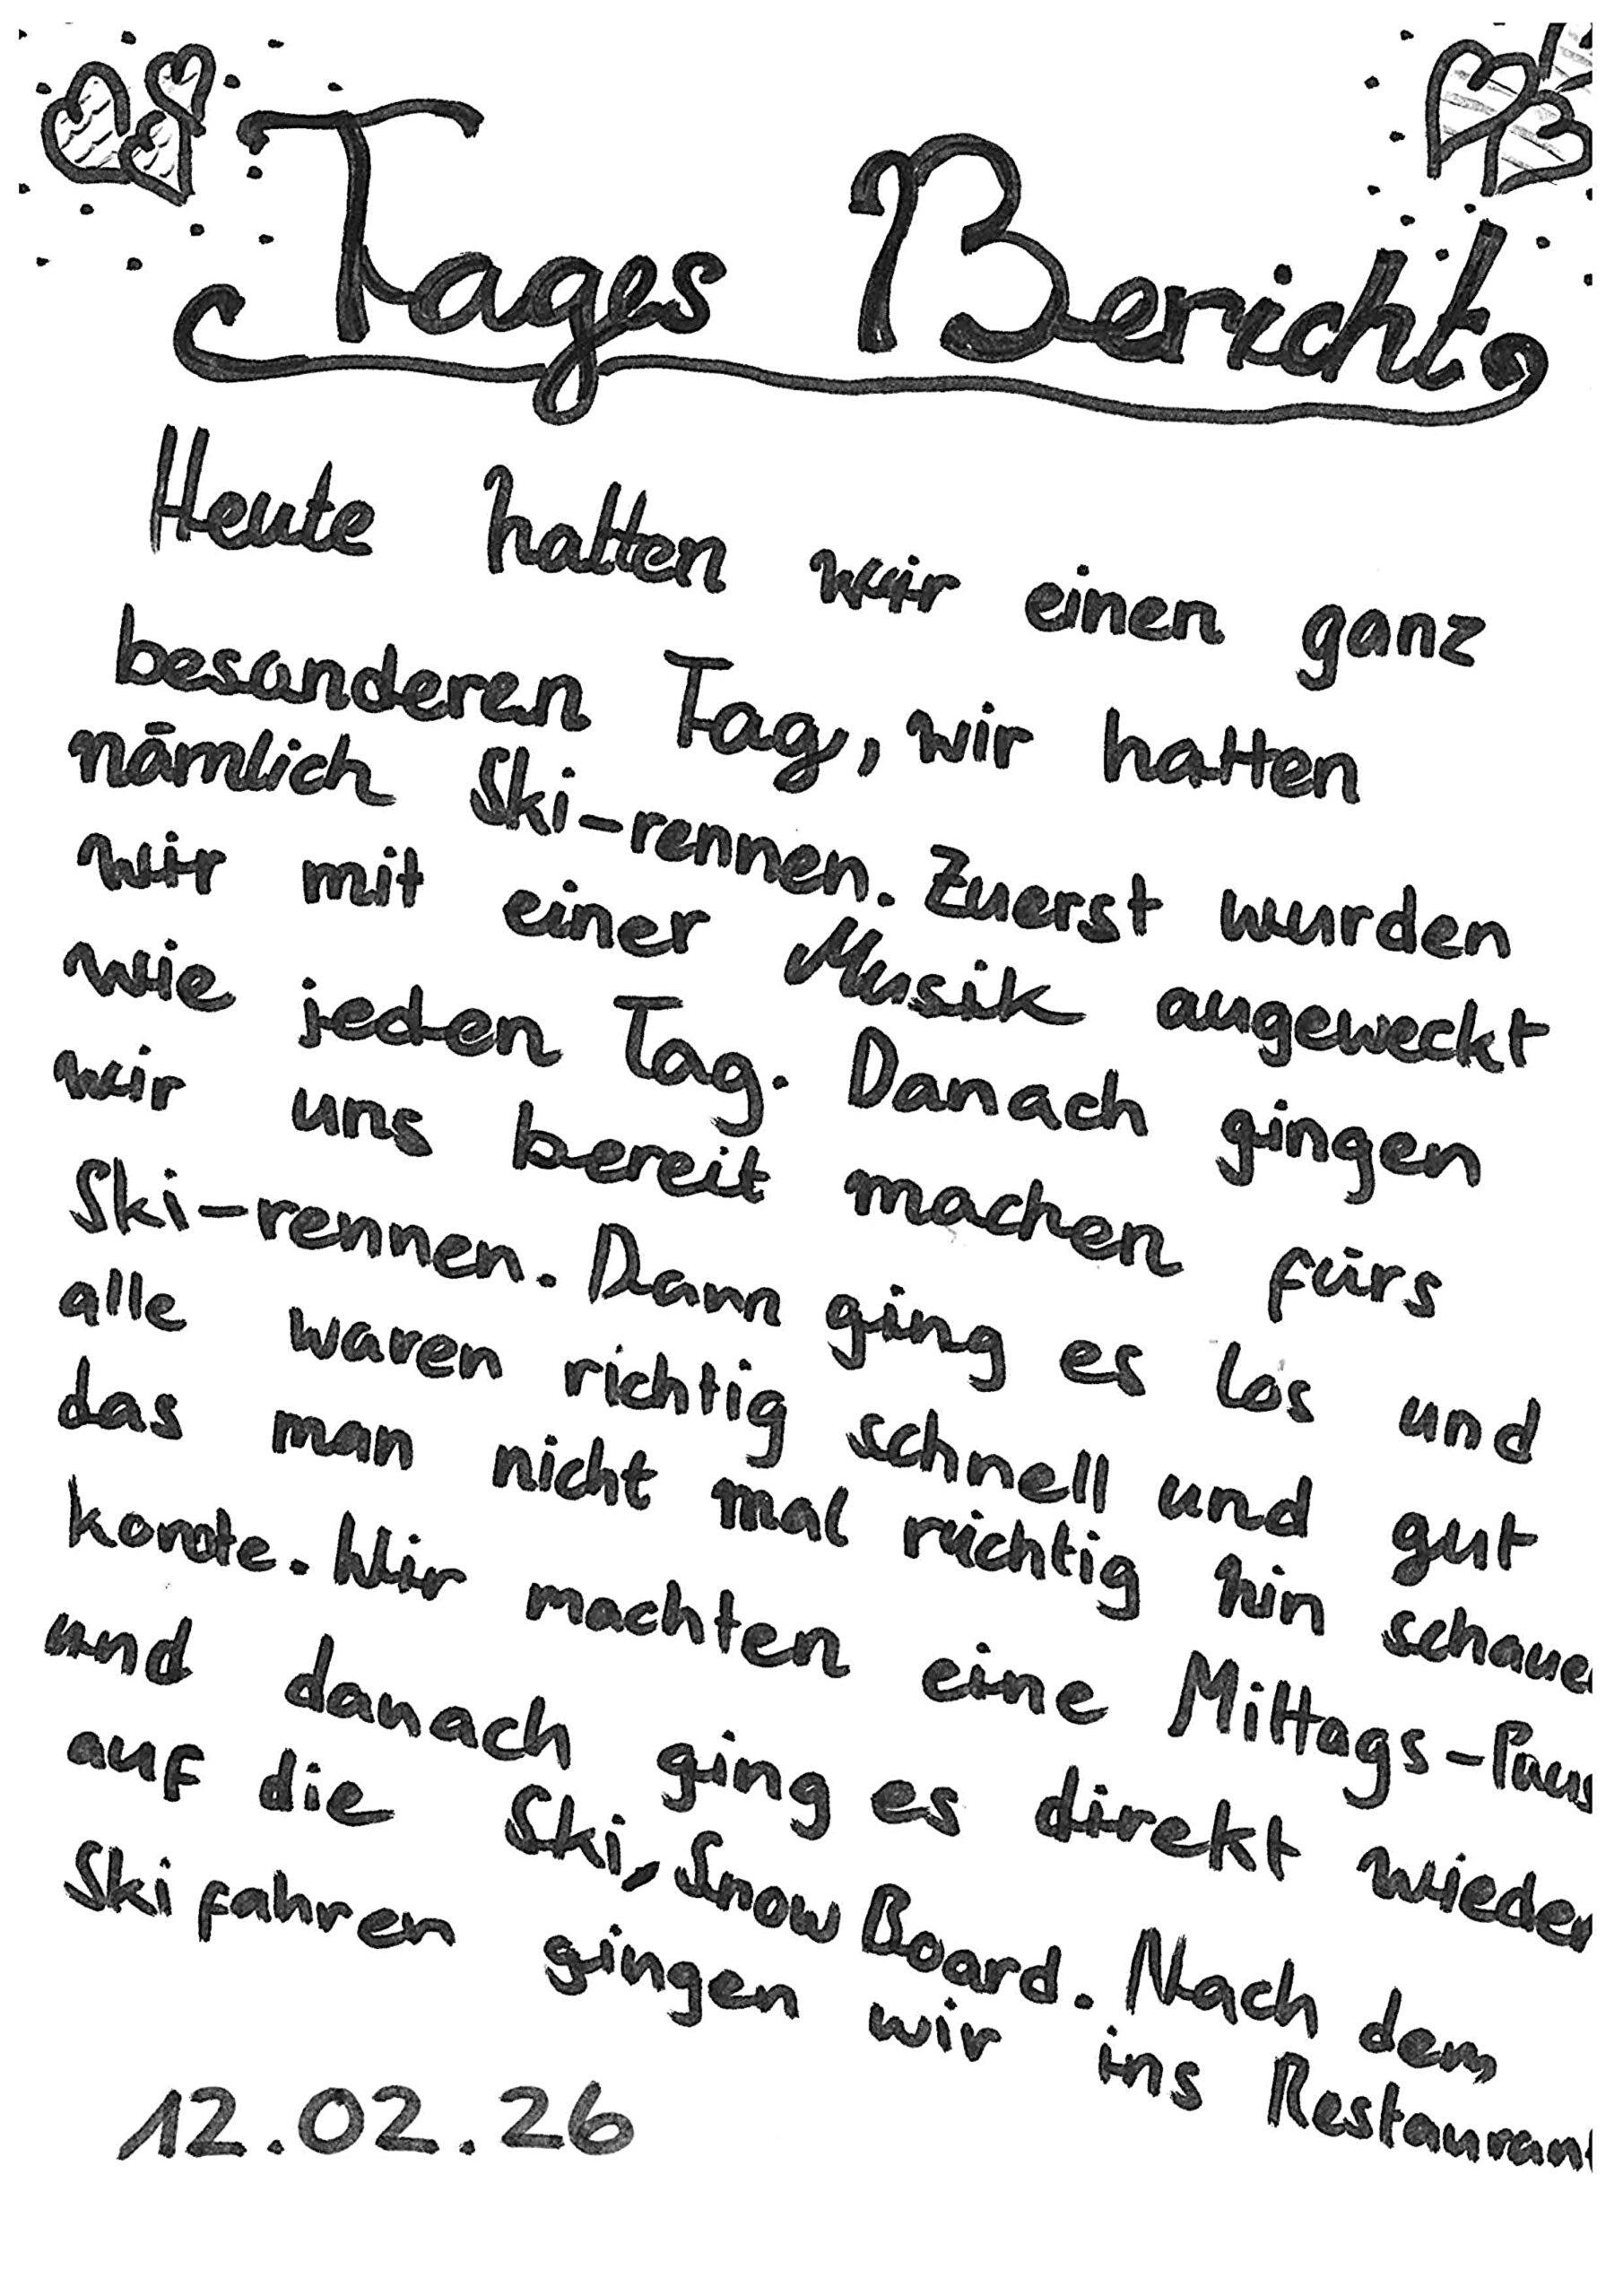 Tages Bericht
Heute hatten wir einen ganz
besonderen Tag, wir hatten
nämlich Ski-rennen. Zuerst wurden
wir mit einer Musik augeweckt
wie jeden Tag. Danach gingen
wir uns bereit machen fürs
Ski-rennen. Dann ging es los und
alle waren richtig schnell und gut
das man nicht mal richtig hin schaue
konnte. Wir machten eine Mittags-Paus
und danach ging es direkt wieder
auf die Ski, Snow Board. Nach dem
Ski fahren gingen wir ins Restaurant
12.02.26